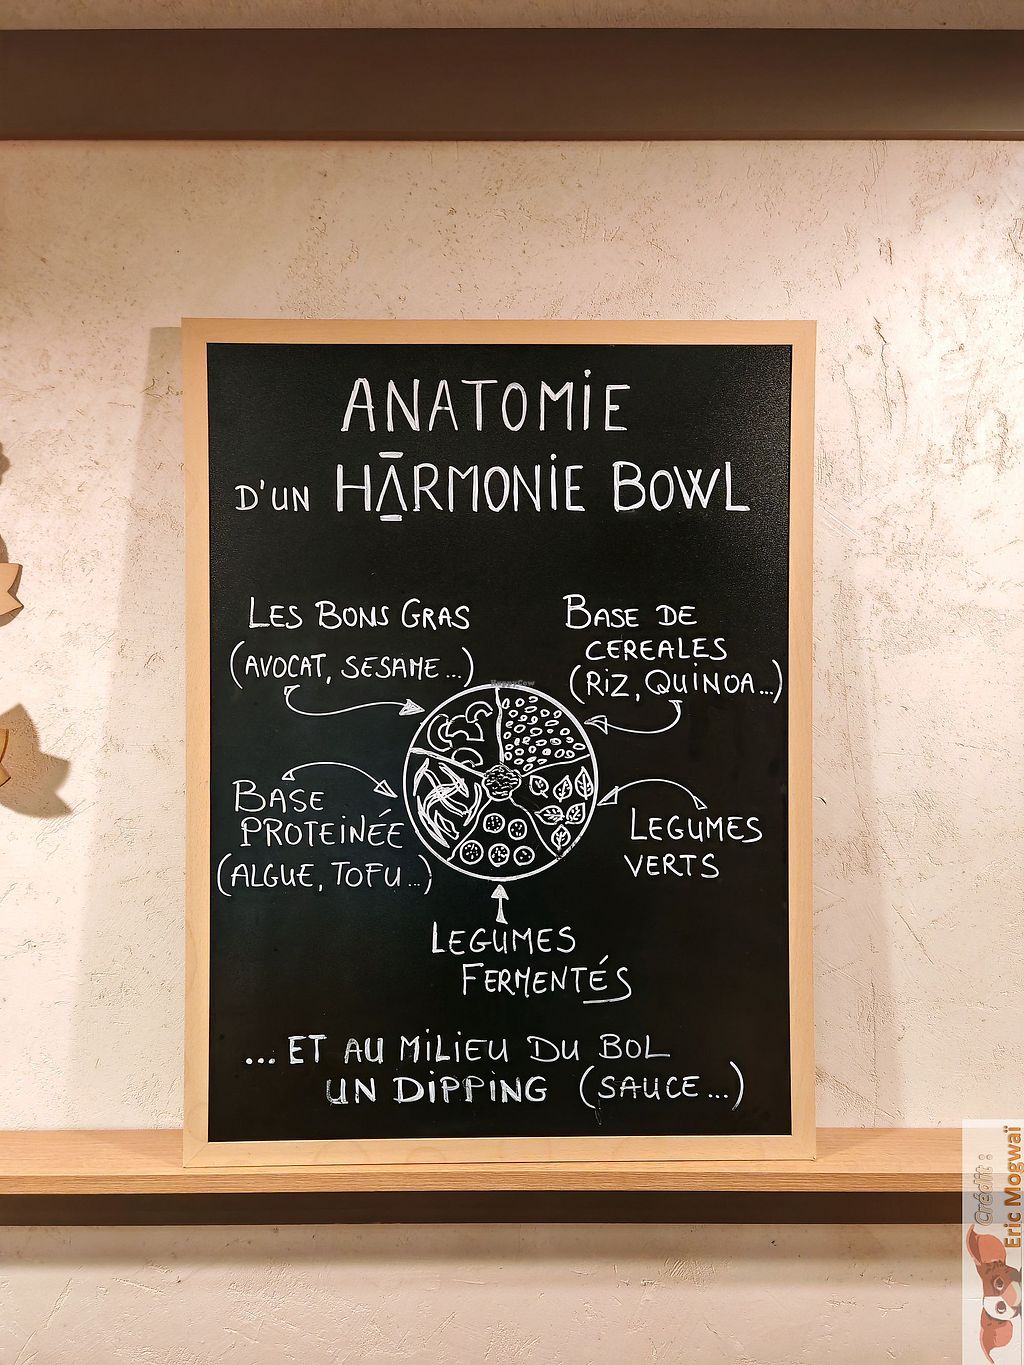 ANATOMIE
D'UN HARMONIE BOWL
LES BONS GRAS
(AVOCAT, SESAME...)
BASE DE
CEREALES
(RIZ, QUINOA...)
BASE
PROTEINÉE
(ALGUE, TOFU...)
LEGUMES
VERTS
LEGUMES
FERMENTÉS
... ET AU MILIEU DU BOL
UN DIPPING (SAUCE...)
HappyCow
Crédit :
Eric Mogwaï